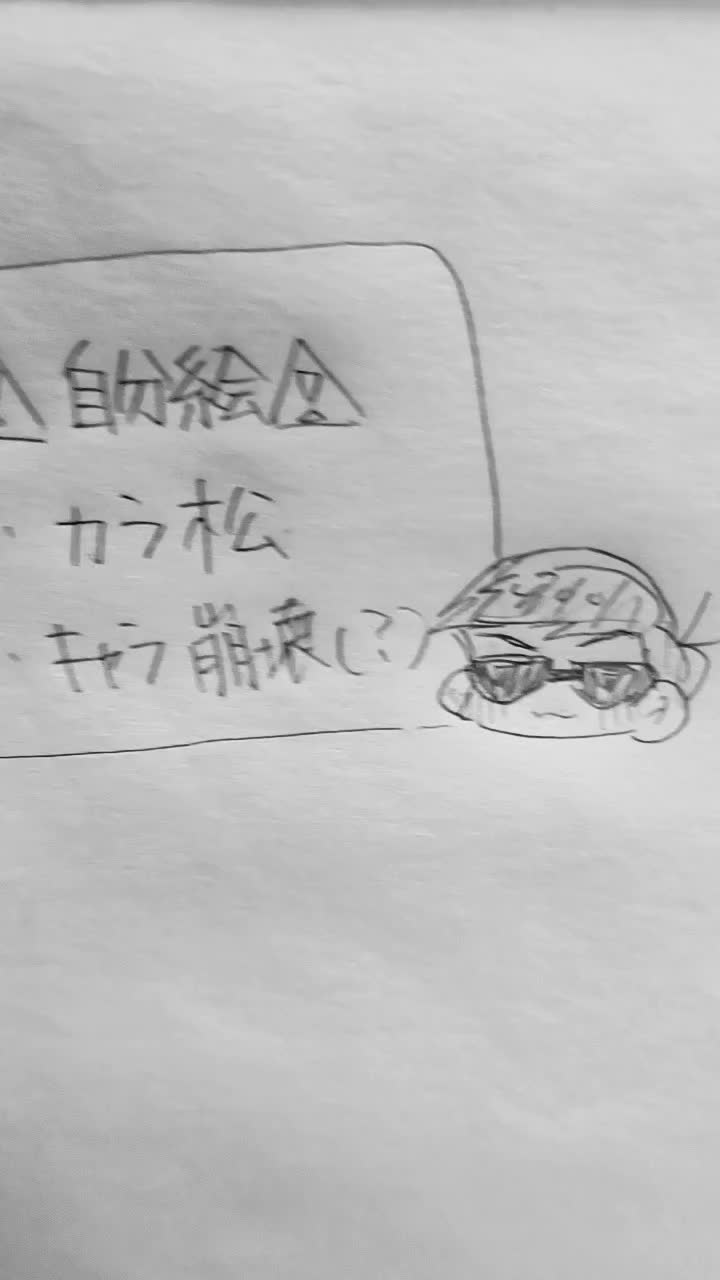 ⚠自分絵⚠
・カラ松
・キャラ崩壊(?)